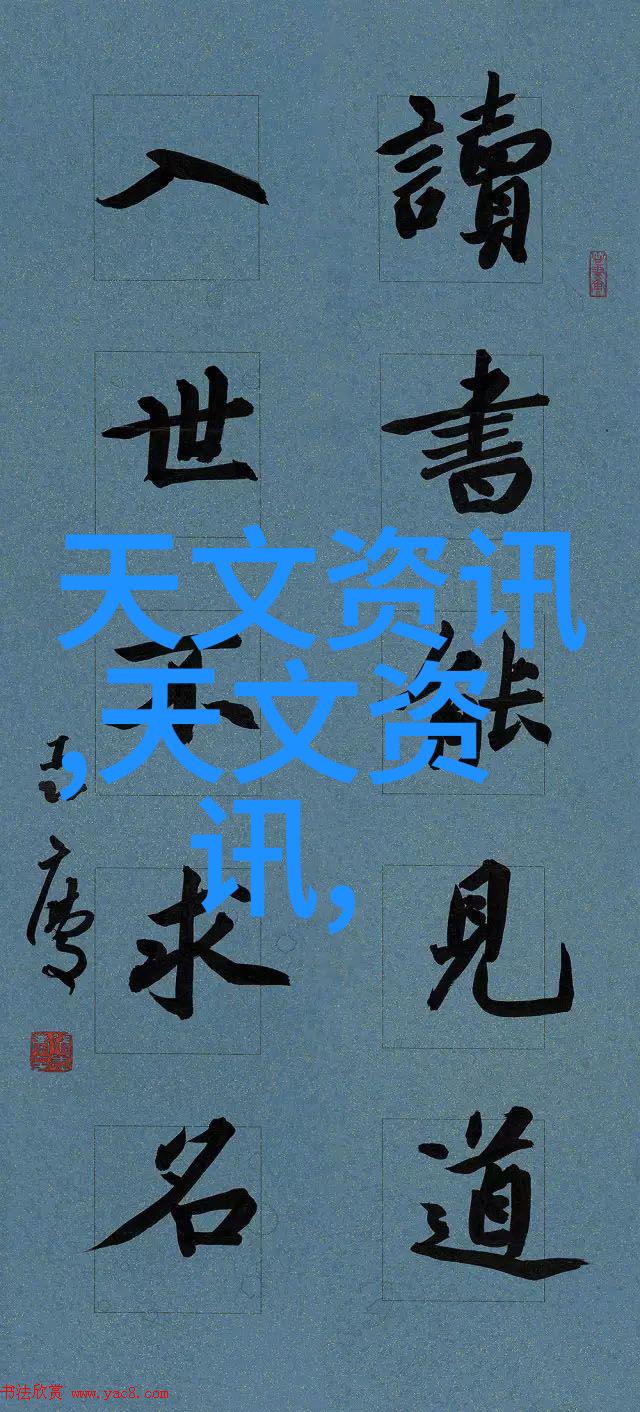 讀書能見道
入世不求名
天文资讯
,天文资
讯,
书法欣赏 www.yac8.com